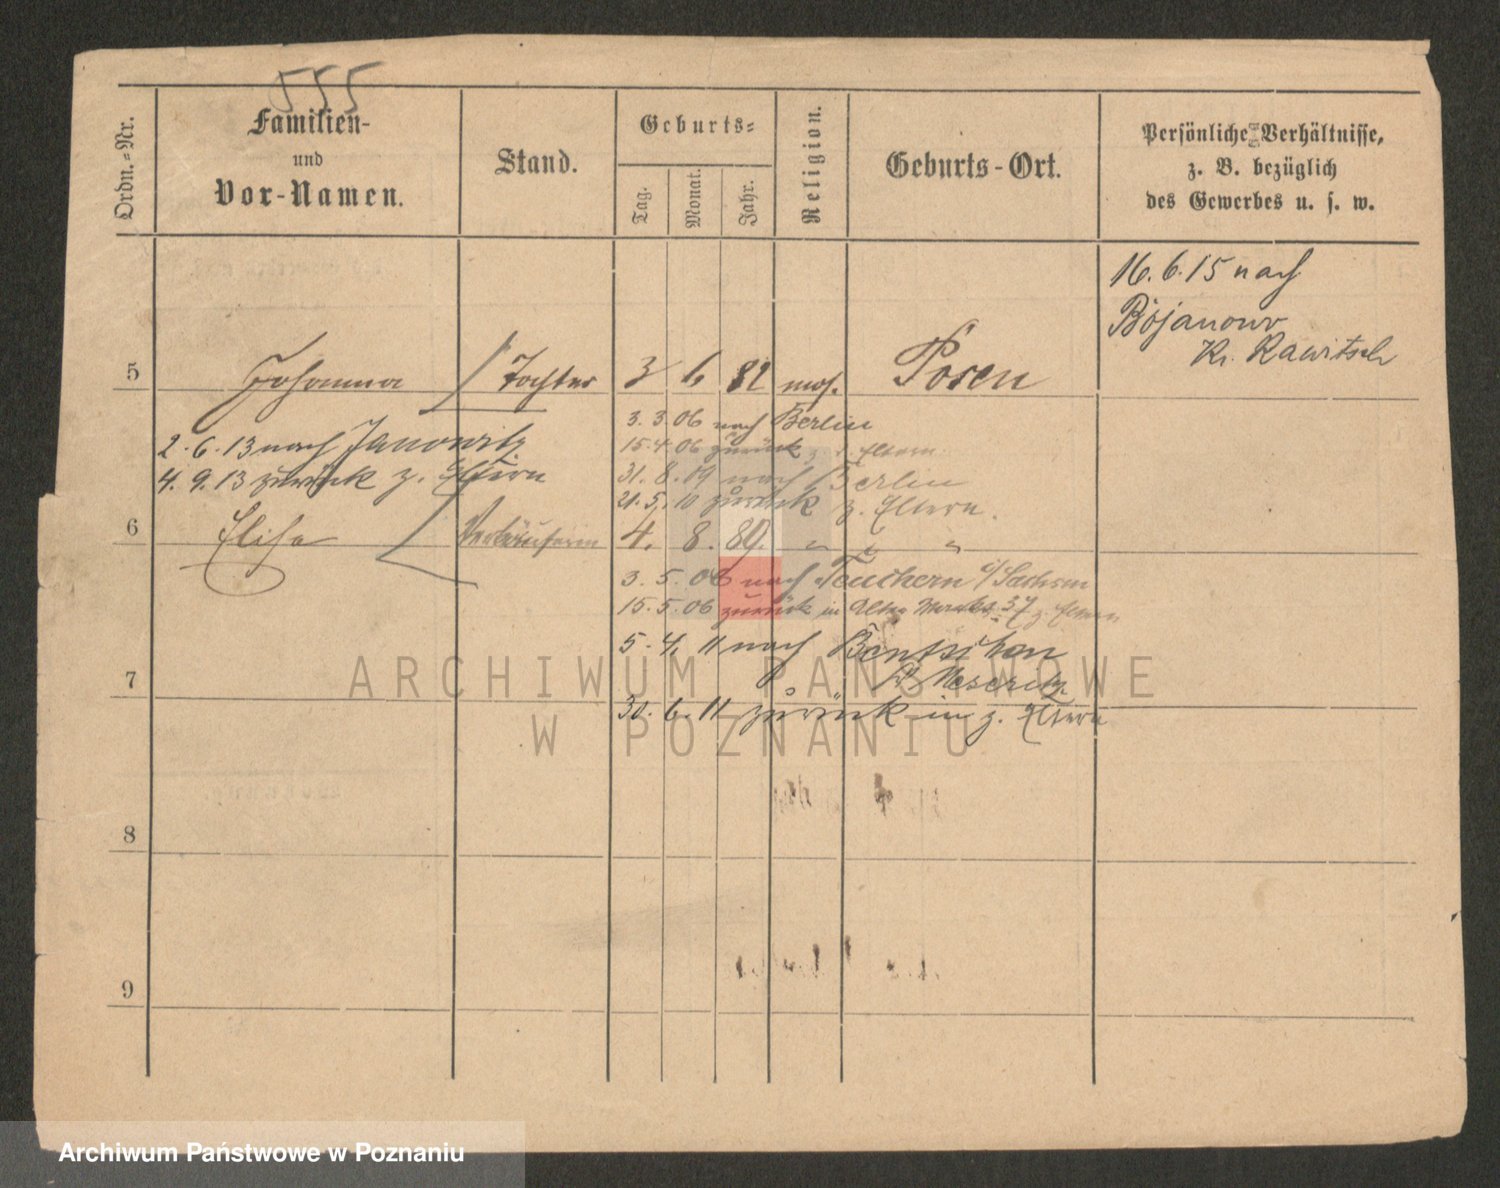 555
Ordn.-Nr.
Familien-
und
Vor-Namen.
Stand.
Geburts-
Tag.
Monat.
Jahr.
Religion.
Geburts-Ort.
Persönliche Verhältnisse,
z. B. bezüglich
des Gewerbes u. s. w.
16.6.15 nach
Bojanowo
Kr. Rawitsch
5 Johanna Tochter 3 6 82 mos. Posen
3.3.06 nach Berlin
2.6.13 nach Janowitz
15.4.06 zurück z. d. Eltern
4.9.13 zurück z. Eltern
31.8.09 nach Berlin
21.5.10 zurück z. Eltern.
6 Elise Verkäuferin 4. 8. 89. " " "
3.5.06 nach Teuchern i/Sachsen
15.5.06 zurück in Alter Markt 37 z. Eltern
5.4.11 nach Bentschen
7 Meseritz
30.6.11 zurück in z. Eltern
8
9
ARCHIWUM PAŃSTWOWE
W POZNANIU
Archiwum Państwowe w Poznaniu